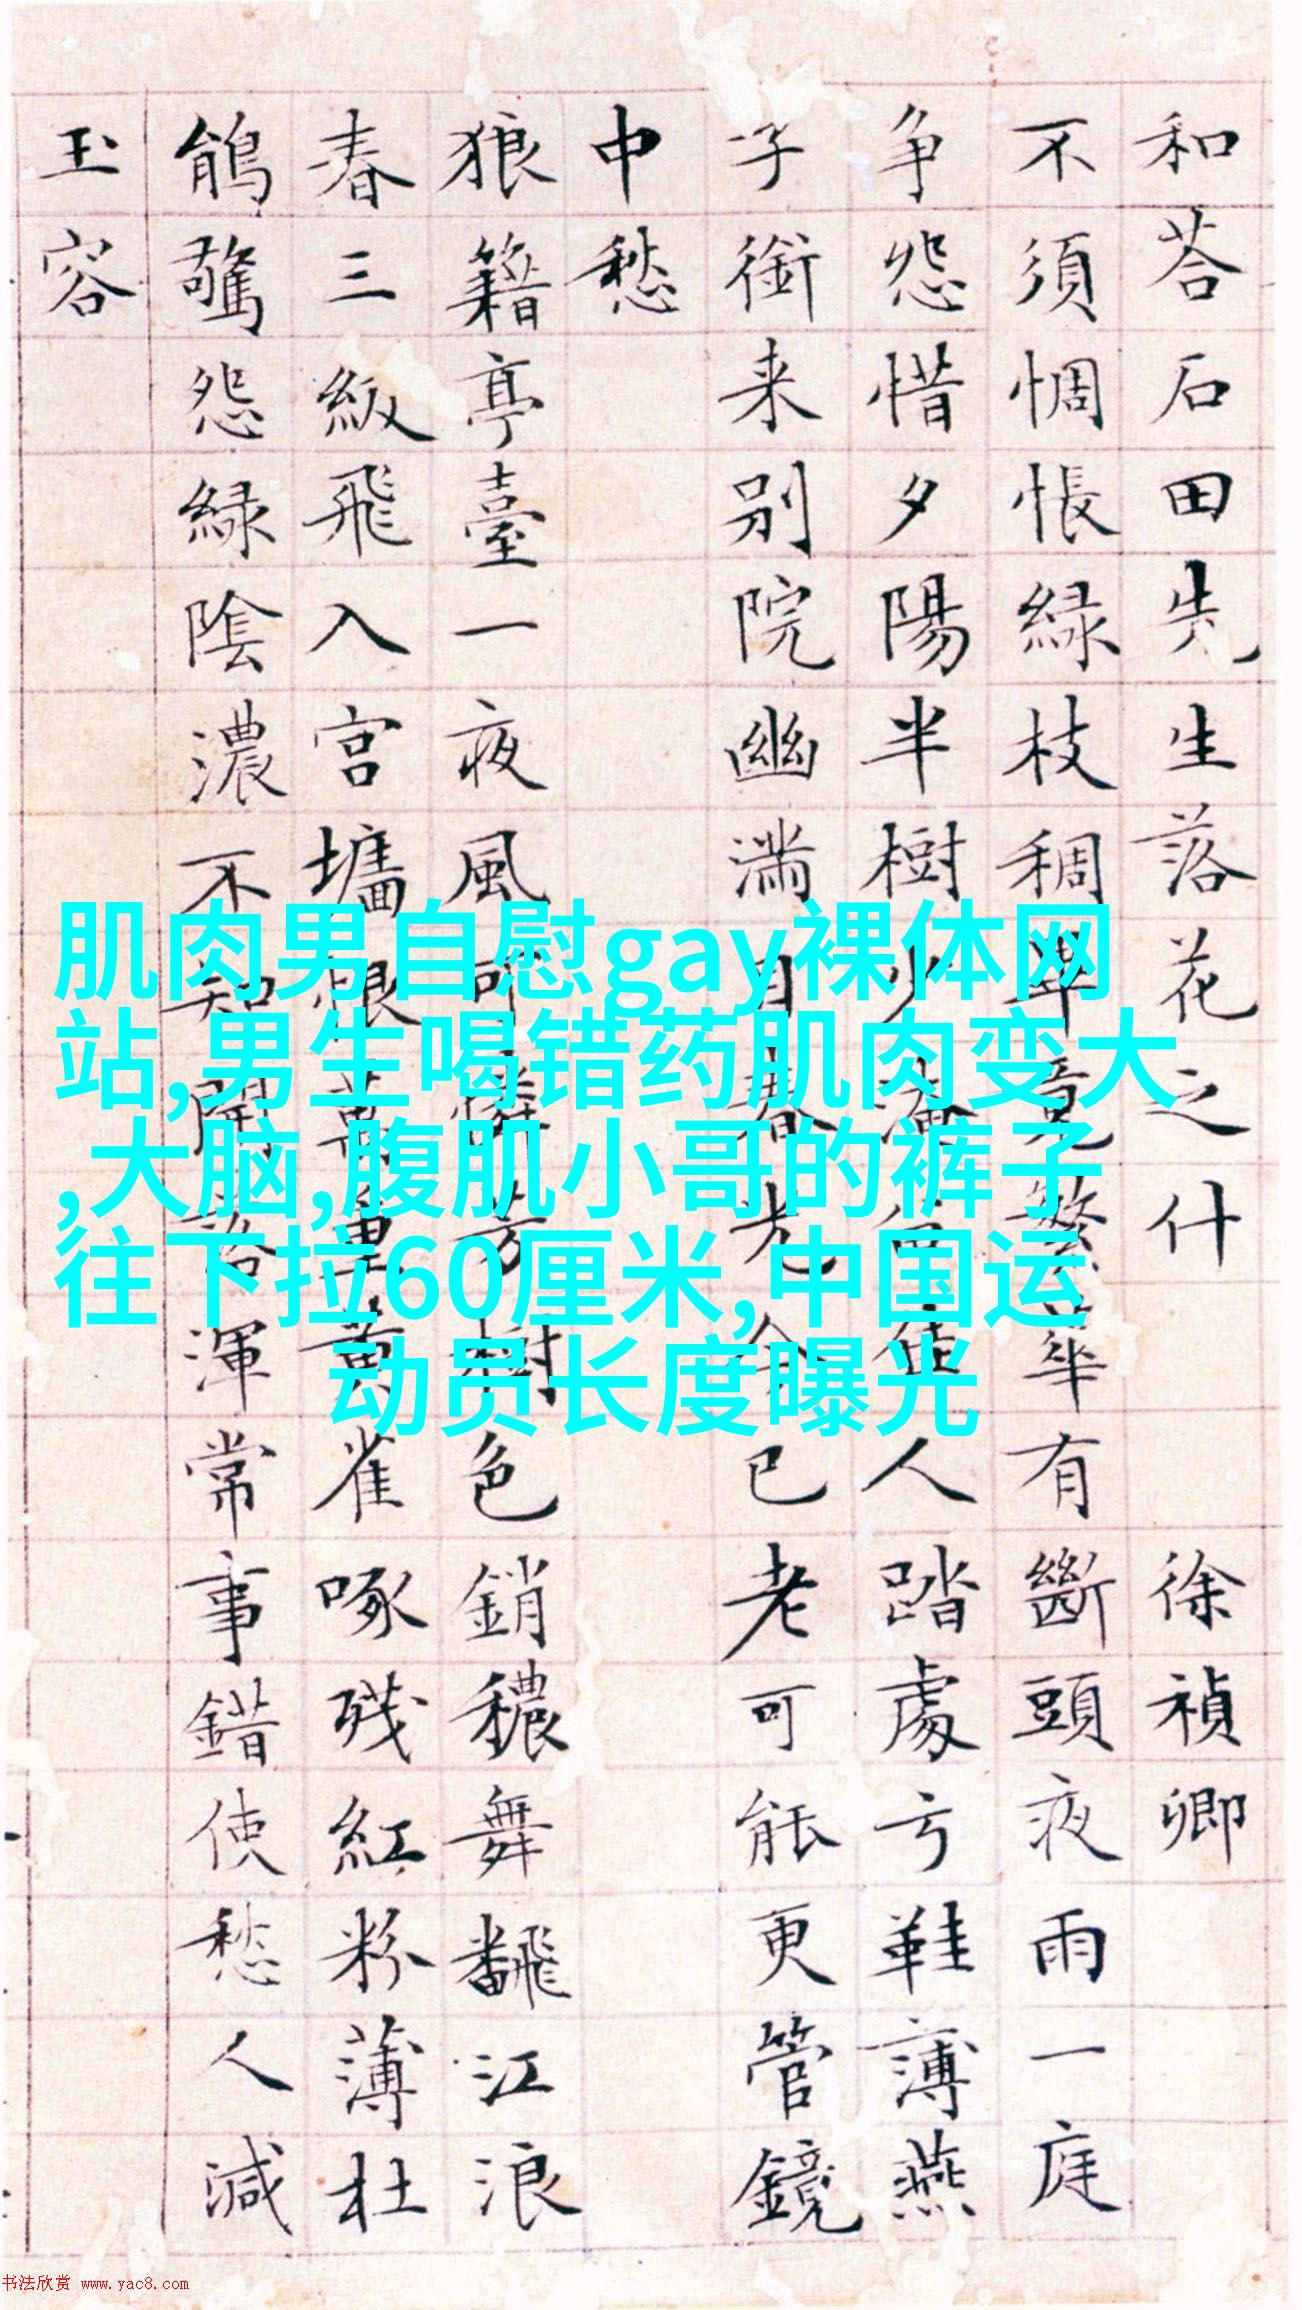 和荅石田先生落花之什 徐禎卿
不須惆悵緑枝稠畢竟繁華有斷頭夜雨一庭
争怨惜夕陽半樹少淹留佳人踏處亏鞋薄燕
子銜来别院幽満目春光今已老可能更管鏡
中愁
狼籍亭臺一夜風可憐芳樹色銷穠舞飜江浪
春三級飛入宫墻恨萬重黄雀啄殘紅粉薄杜
鵑驚怨緑陰濃不知開落渾常事錯使愁人減
玉容
肌肉男自慰gay裸体网
站,男生喝错药肌肉变大
,大脑,腹肌小哥的裤子
往下拉60厘米,中国运
动员长度曝光
书法欣赏 www.yac8.com